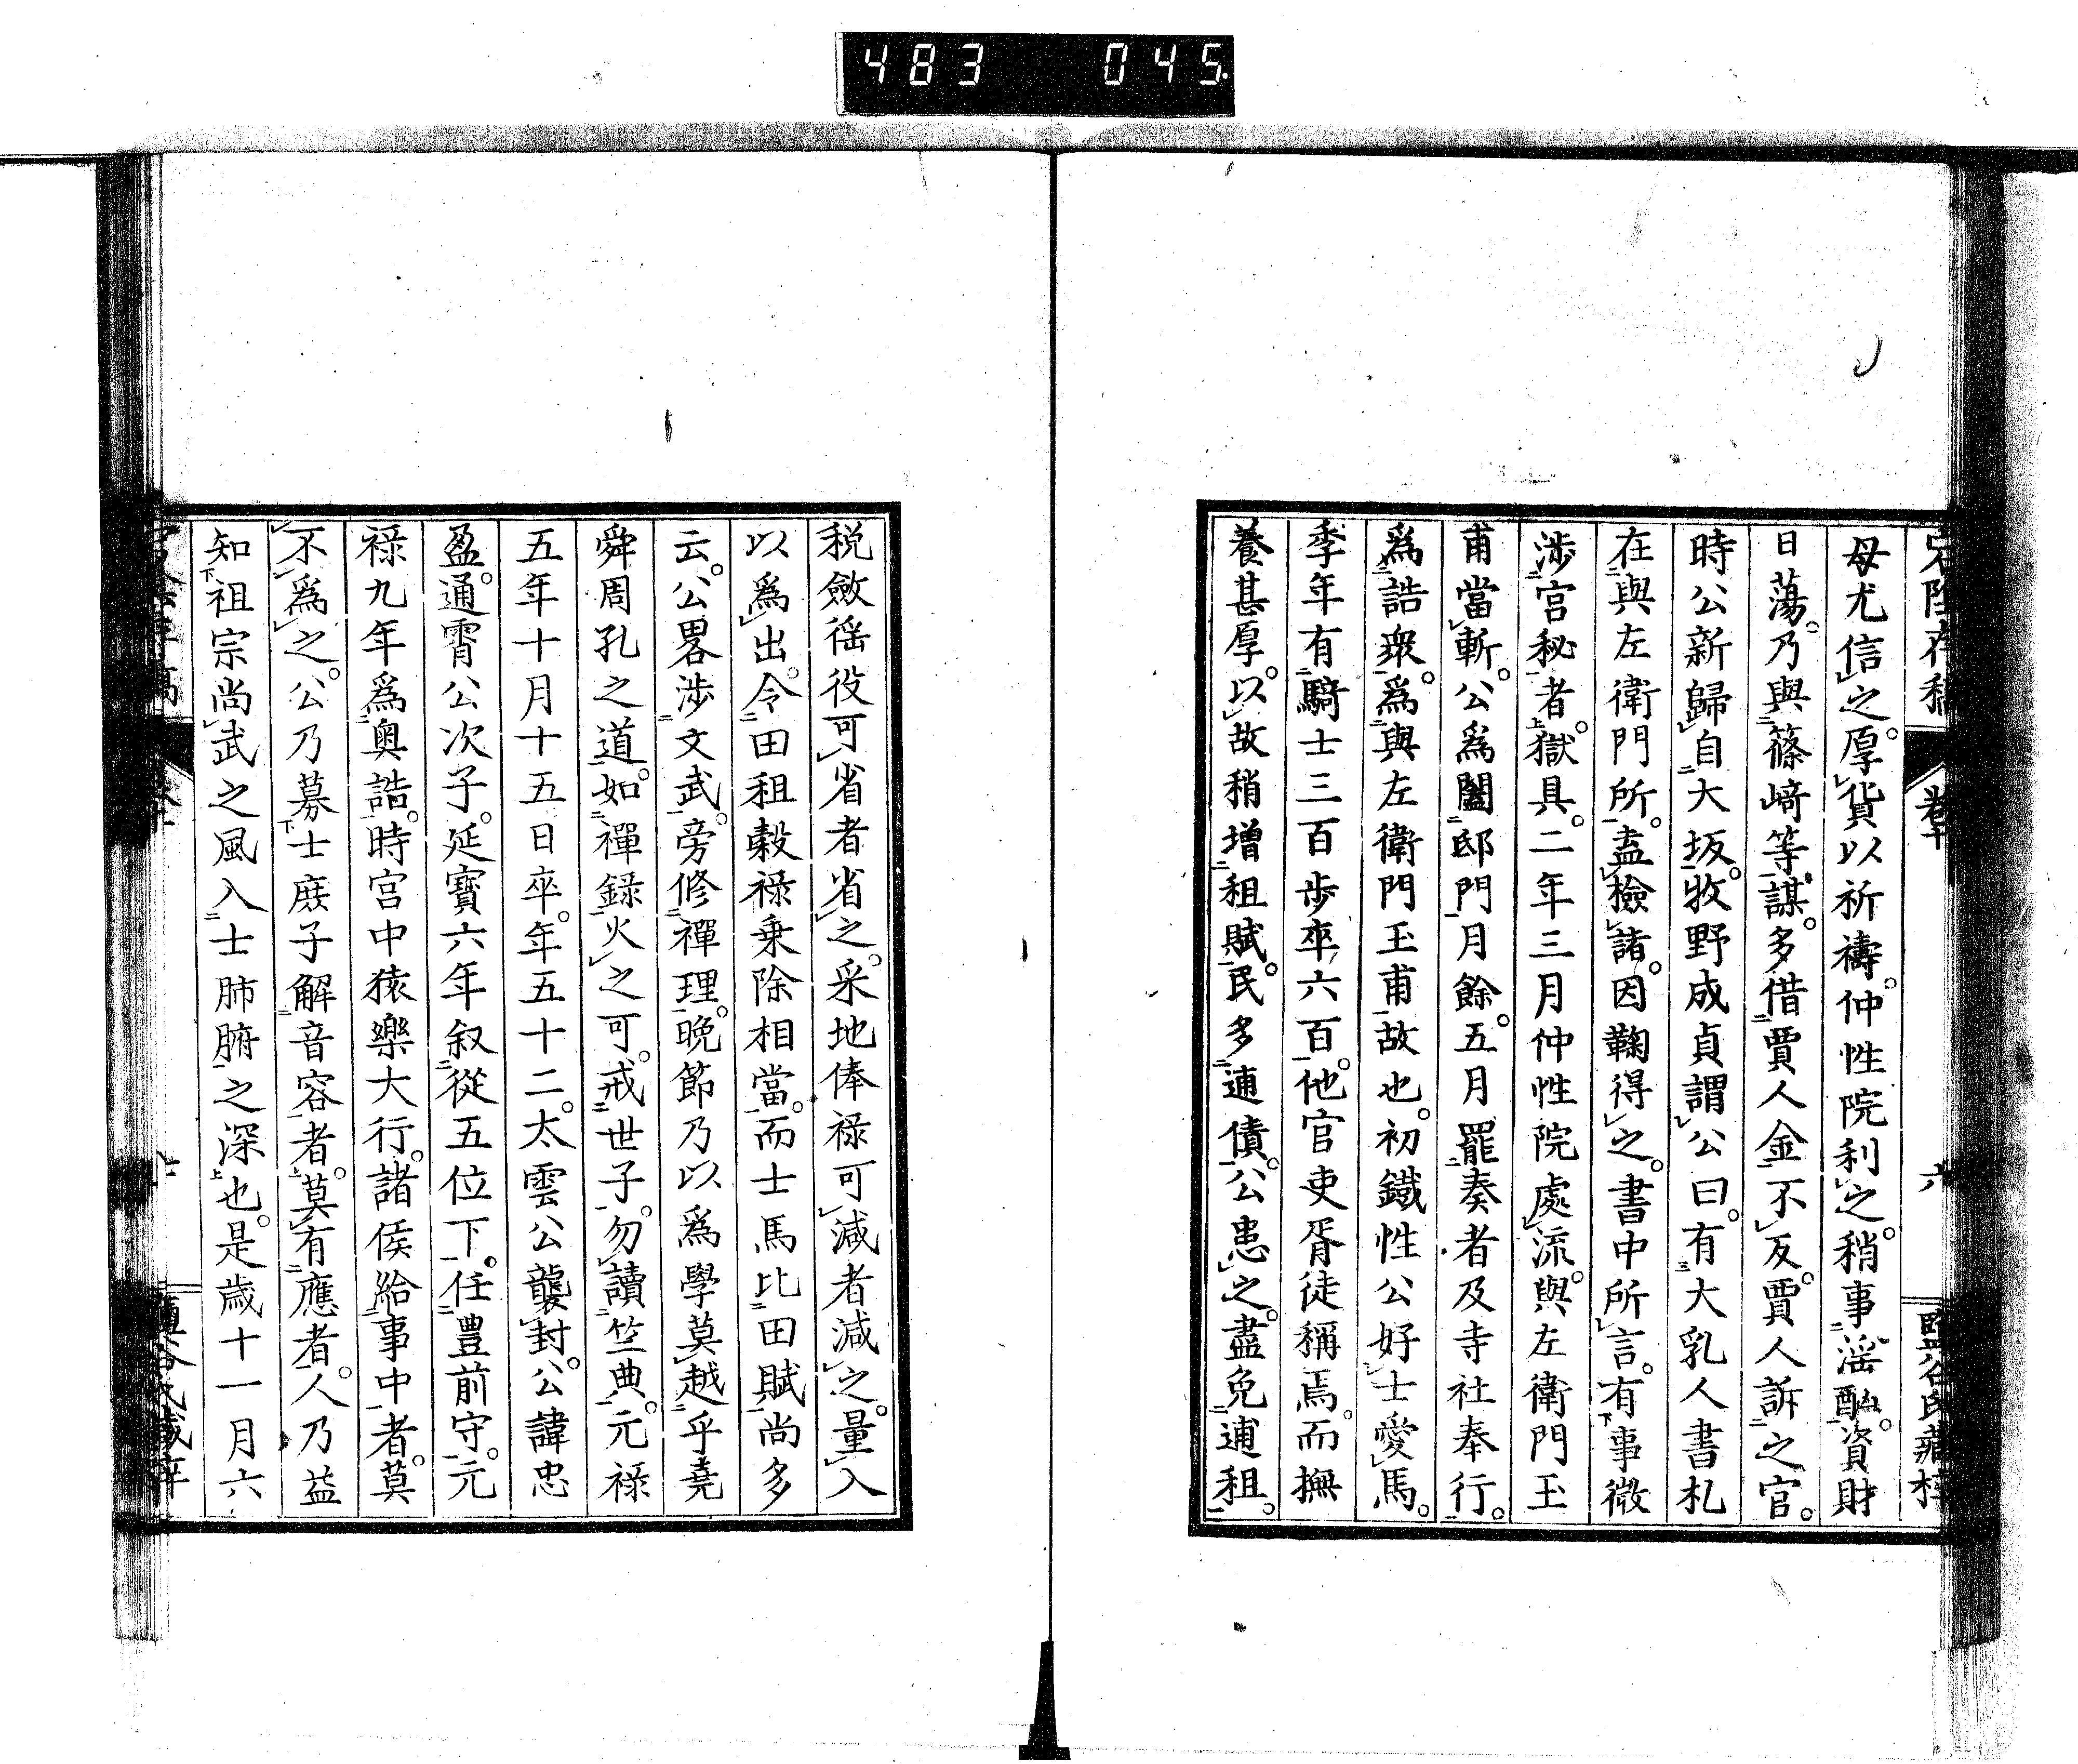 483 045
宕陰存稿
卷十
六
鹽谷氏藏梓
母尤信之厚貨以祈禱仲性院利之稍事淫酗資財
日蕩乃與篠﨑等謀多借賈人金不反賈人訴之官
時公新歸自大坂牧野成貞謂公曰有大乳人書札
在與左衛門所盍檢諸因鞠得之書中所言有事微
涉宮秘者獄具二年三月仲性院處流與左衛門玉
甫當斬公爲闔邸門月餘五月罷奏者及寺社奉行
爲誥衆爲與左衛門玉甫故也初鐵性公好士愛馬
季年有騎士三百步卒六百他官吏胥徒稱焉而撫
養甚厚以故稍增租賦民多逋債公患之盡免逋租
稅斂徭役可省者省之采地俸祿可減者減之量入
以爲出令田租穀祿乘除相當而士馬比田賦尚多
云公畧涉文武旁修禪理晚節乃以爲學莫越乎堯
舜周孔之道如禪錄火之可戒世子勿讀竺典元祿
五年十月十五日卒年五十二太雲公襲封公諱忠
盈通霄公次子延寶六年叙從五位下任豐前守元
祿九年爲奧誥時宮中猿樂大行諸侯給事中者莫
不爲之公乃募士庶子解音容者莫有應者人乃益
知祖宗尚武之風入士肺腑之深也是歲十一月六